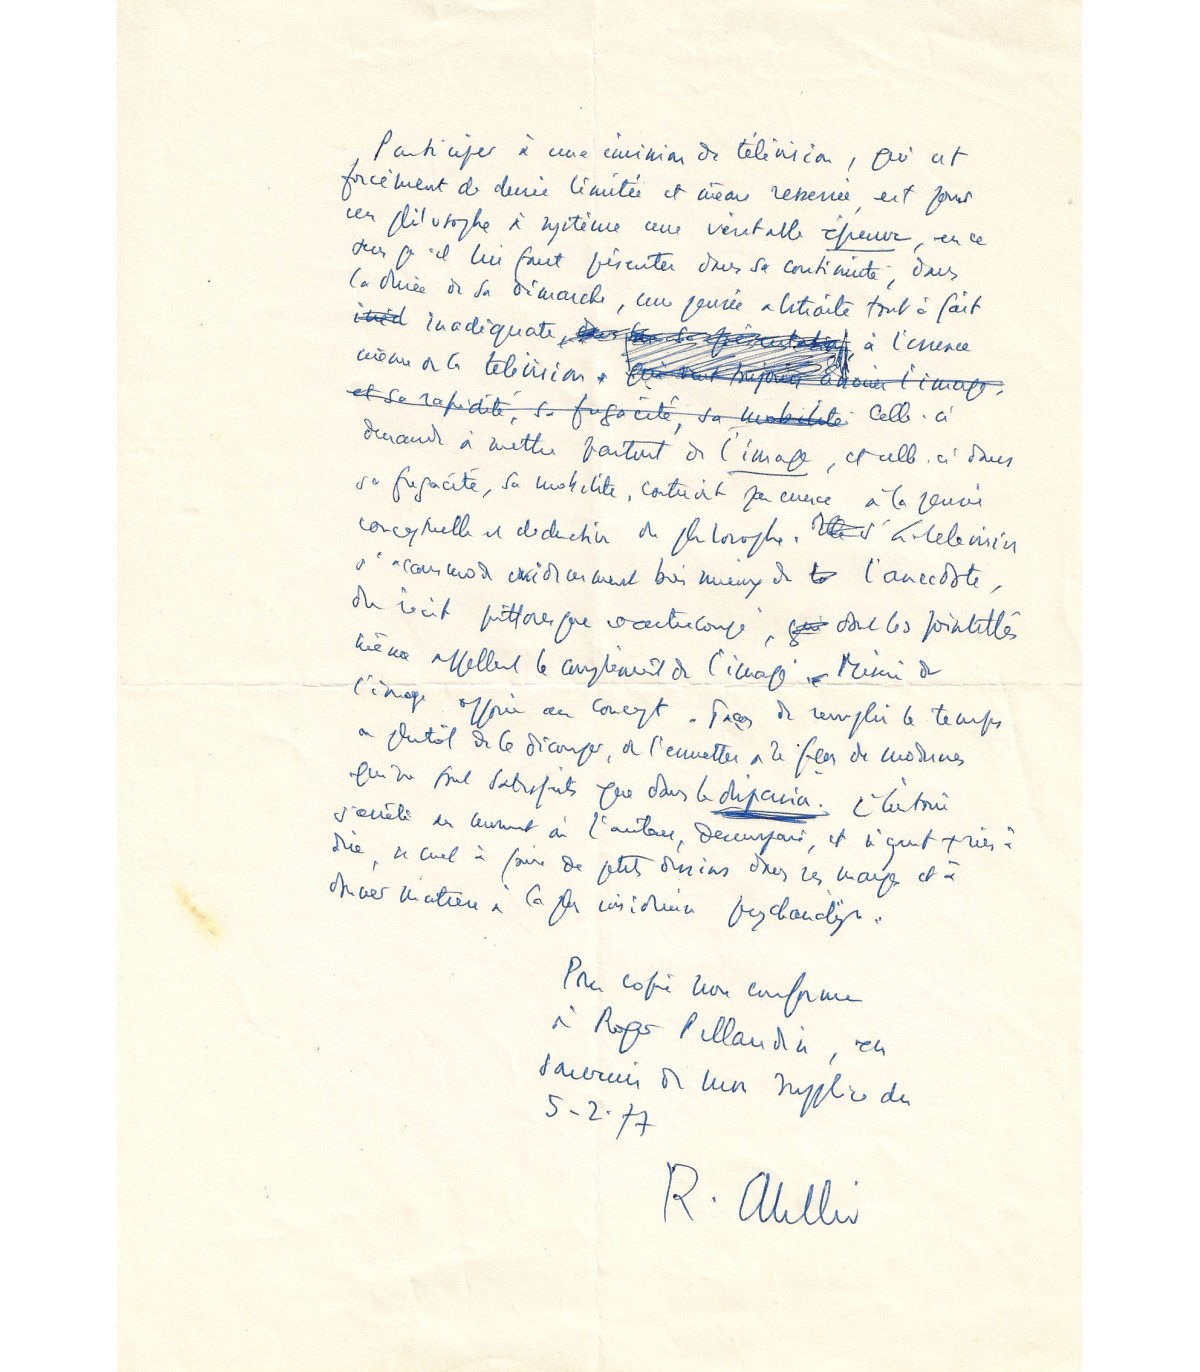 Participer à une émission de télévision, qui est
forcément de durée limitée et même resserrée, est pour
un philosophe à système une véritable épreuve, en ce
sens qu'il lui faut présenter dans sa continuité, dans
la durée de sa démarche, une pensée abstraite tout à fait
inadéquate, à l'essence
même de la télévision. qui veut toujours l'image,
et sa rapidité, sa fugacité, sa mobilité Celle-ci
demande à mettre partout de l'image, et celle-ci dans
sa fugacité, sa mobilité, contredit par essence à la pensée
conceptuelle et déductive du philosophe. La télévision
s'accommode évidemment bien mieux de l'anecdote,
du récit pittoresque, dont les pointillés
même appellent le complément de l'image. de
l'image au concept. de remplir le temps
ou plutôt de le découper, de l'émietter à la façon de modernes
qui ne sont satisfaits que dans le
et n'ayant + rien à
dire, à faire de petits dessins dans les marges et à
donner matière à la psychanalyse.
Pour copie non conforme
à Roger Pillaudin, en
souvenir de mon supplice du
5-2-77
R. Abellio